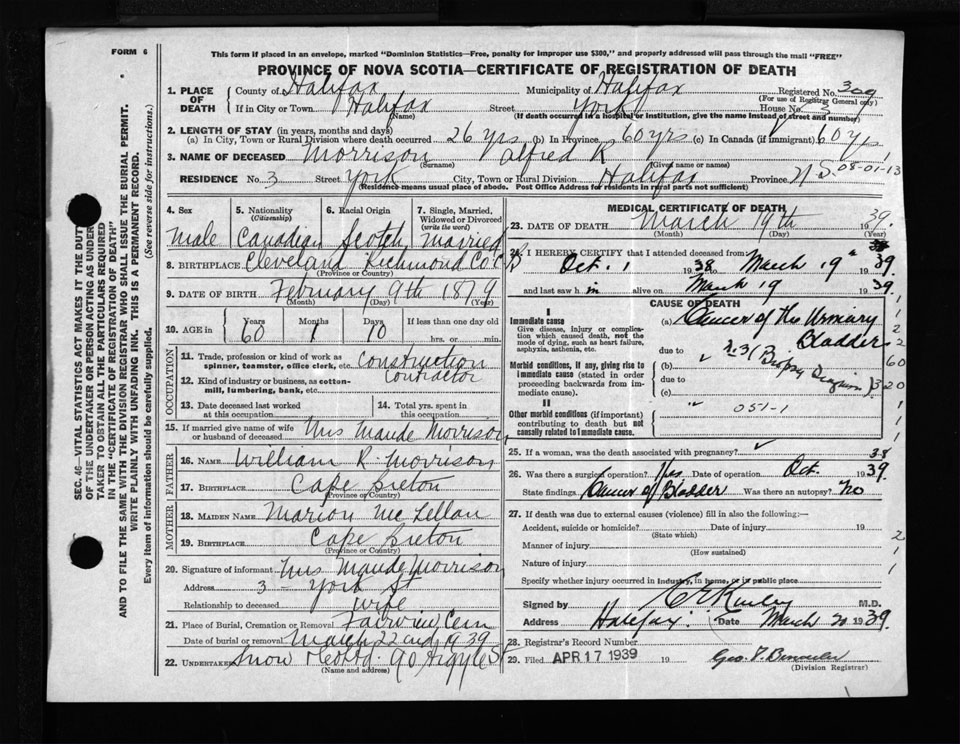 FORM 6
This form if placed in an envelope, marked "Dominion Statistics—Free, penalty for improper use $300," and properly addressed will pass through the mail "FREE"
PROVINCE OF NOVA SCOTIA—CERTIFICATE OF REGISTRATION OF DEATH
SEC. 46—VITAL STATISTICS ACT MAKES IT THE DUTY
OF THE UNDERTAKER OR PERSON ACTING AS UNDER
TAKER TO OBTAIN ALL THE PARTICULARS REQUIRED
IN THE "CERTIFICATE OF REGISTRATION OF DEATH"
AND TO FILE THE SAME WITH THE DIVISION REGISTRAR WHO SHALL ISSUE THE BURIAL PERMIT.
WRITE PLAINLY WITH UNFADING INK. THIS IS A PERMANENT RECORD.
Every item of information should be carefully supplied. (See reverse side for instructions.)
1. PLACE OF DEATH
County of Halifax Municipality of Halifax Registered No. 309
(For use of Registrar General only)
If in City or Town Halifax Street York House No. 3
(Name) (If death occurred in a hospital or institution, give the name instead of street and number)
2. LENGTH OF STAY (in years, months and days)
(a) In City, Town or Rural Division where death occurred 26 yrs (b) In Province 60 yrs (c) In Canada (if immigrant) 60 yrs
3. NAME OF DECEASED Morrison Alfred R
(Surname) (Given name or names)
RESIDENCE No. 3 Street York City, Town or Rural Division Halifax Province N.S. 08-01-13
(Residence means usual place of abode. Post Office Address for residents in rural parts not sufficient)
4. Sex Male
5. Nationality (Citizenship) Canadian
6. Racial Origin Scotch
7. Single, Married, Widowed or Divorced (write the word) Married
8. BIRTHPLACE Cleveland Richmond Co C B
(Province or Country)
9. DATE OF BIRTH February 9th 1879
(Month) (Day) (Year)
10. AGE in Years 60 Months 1 Days 10 If less than one day old
hrs. or min.
OCCUPATION
11. Trade, profession or kind of work as spinner, teamster, office clerk, etc. Construction
12. Kind of industry or business, as cotton-mill, lumbering, bank, etc. Contractor
13. Date deceased last worked at this occupation
14. Total yrs. spent in this occupation
15. If married give name of wife or husband of deceased Mrs Maude Morrison
FATHER
16. Name William R Morrison
17. Birthplace Cape Breton
(Province or Country)
MOTHER
18. Maiden Name Marion McLellan
19. Birthplace Cape Breton
(Province or Country)
20. Signature of informant Mrs Maude Morrison
Address 3 - York St
Relationship to deceased Wife
21. Place of Burial, Cremation or Removal Fairview Cem
Date of burial or removal March 22nd 1939
22. Undertaker Snow & Co Ltd 90 Argyle St
(Name and address)
MEDICAL CERTIFICATE OF DEATH
23. DATE OF DEATH March 19th 1939
(Month) (Day) (Year)
24. I HEREBY CERTIFY that I attended deceased from
Oct. 1 1938 to March 19 1939
and last saw him alive on March 19 1939
CAUSE OF DEATH
I
Immediate cause
Give disease, injury or complication which caused death, not the mode of dying, such as heart failure, asphyxia, asthenia, etc.
(a) Cancer of the Urinary
Bladder
due to
Morbid conditions, if any, giving rise to immediate cause (stated in order proceeding backwards from immediate cause).
(b) (Biopsy Diagnosis)
due to
(c)
II
Other morbid conditions (if important) contributing to death but not causally related to immediate cause.
051-1
25. If a woman, was the death associated with pregnancy?
26. Was there a surgical operation? Yes Date of operation Oct. 1939 38
State findings Cancer of Bladder Was there an autopsy? No
27. If death was due to external causes (violence) fill in also the following:—
Accident, suicide or homicide? Date of injury 19
(State which)
Manner of injury
(How sustained)
Nature of injury
Specify whether injury occurred in industry, in home, or in public place
Signed by M.D.
Address Halifax Date March 20 1939.
28. Registrar's Record Number
29. Filed APR 17 1939 19
(Division Registrar)